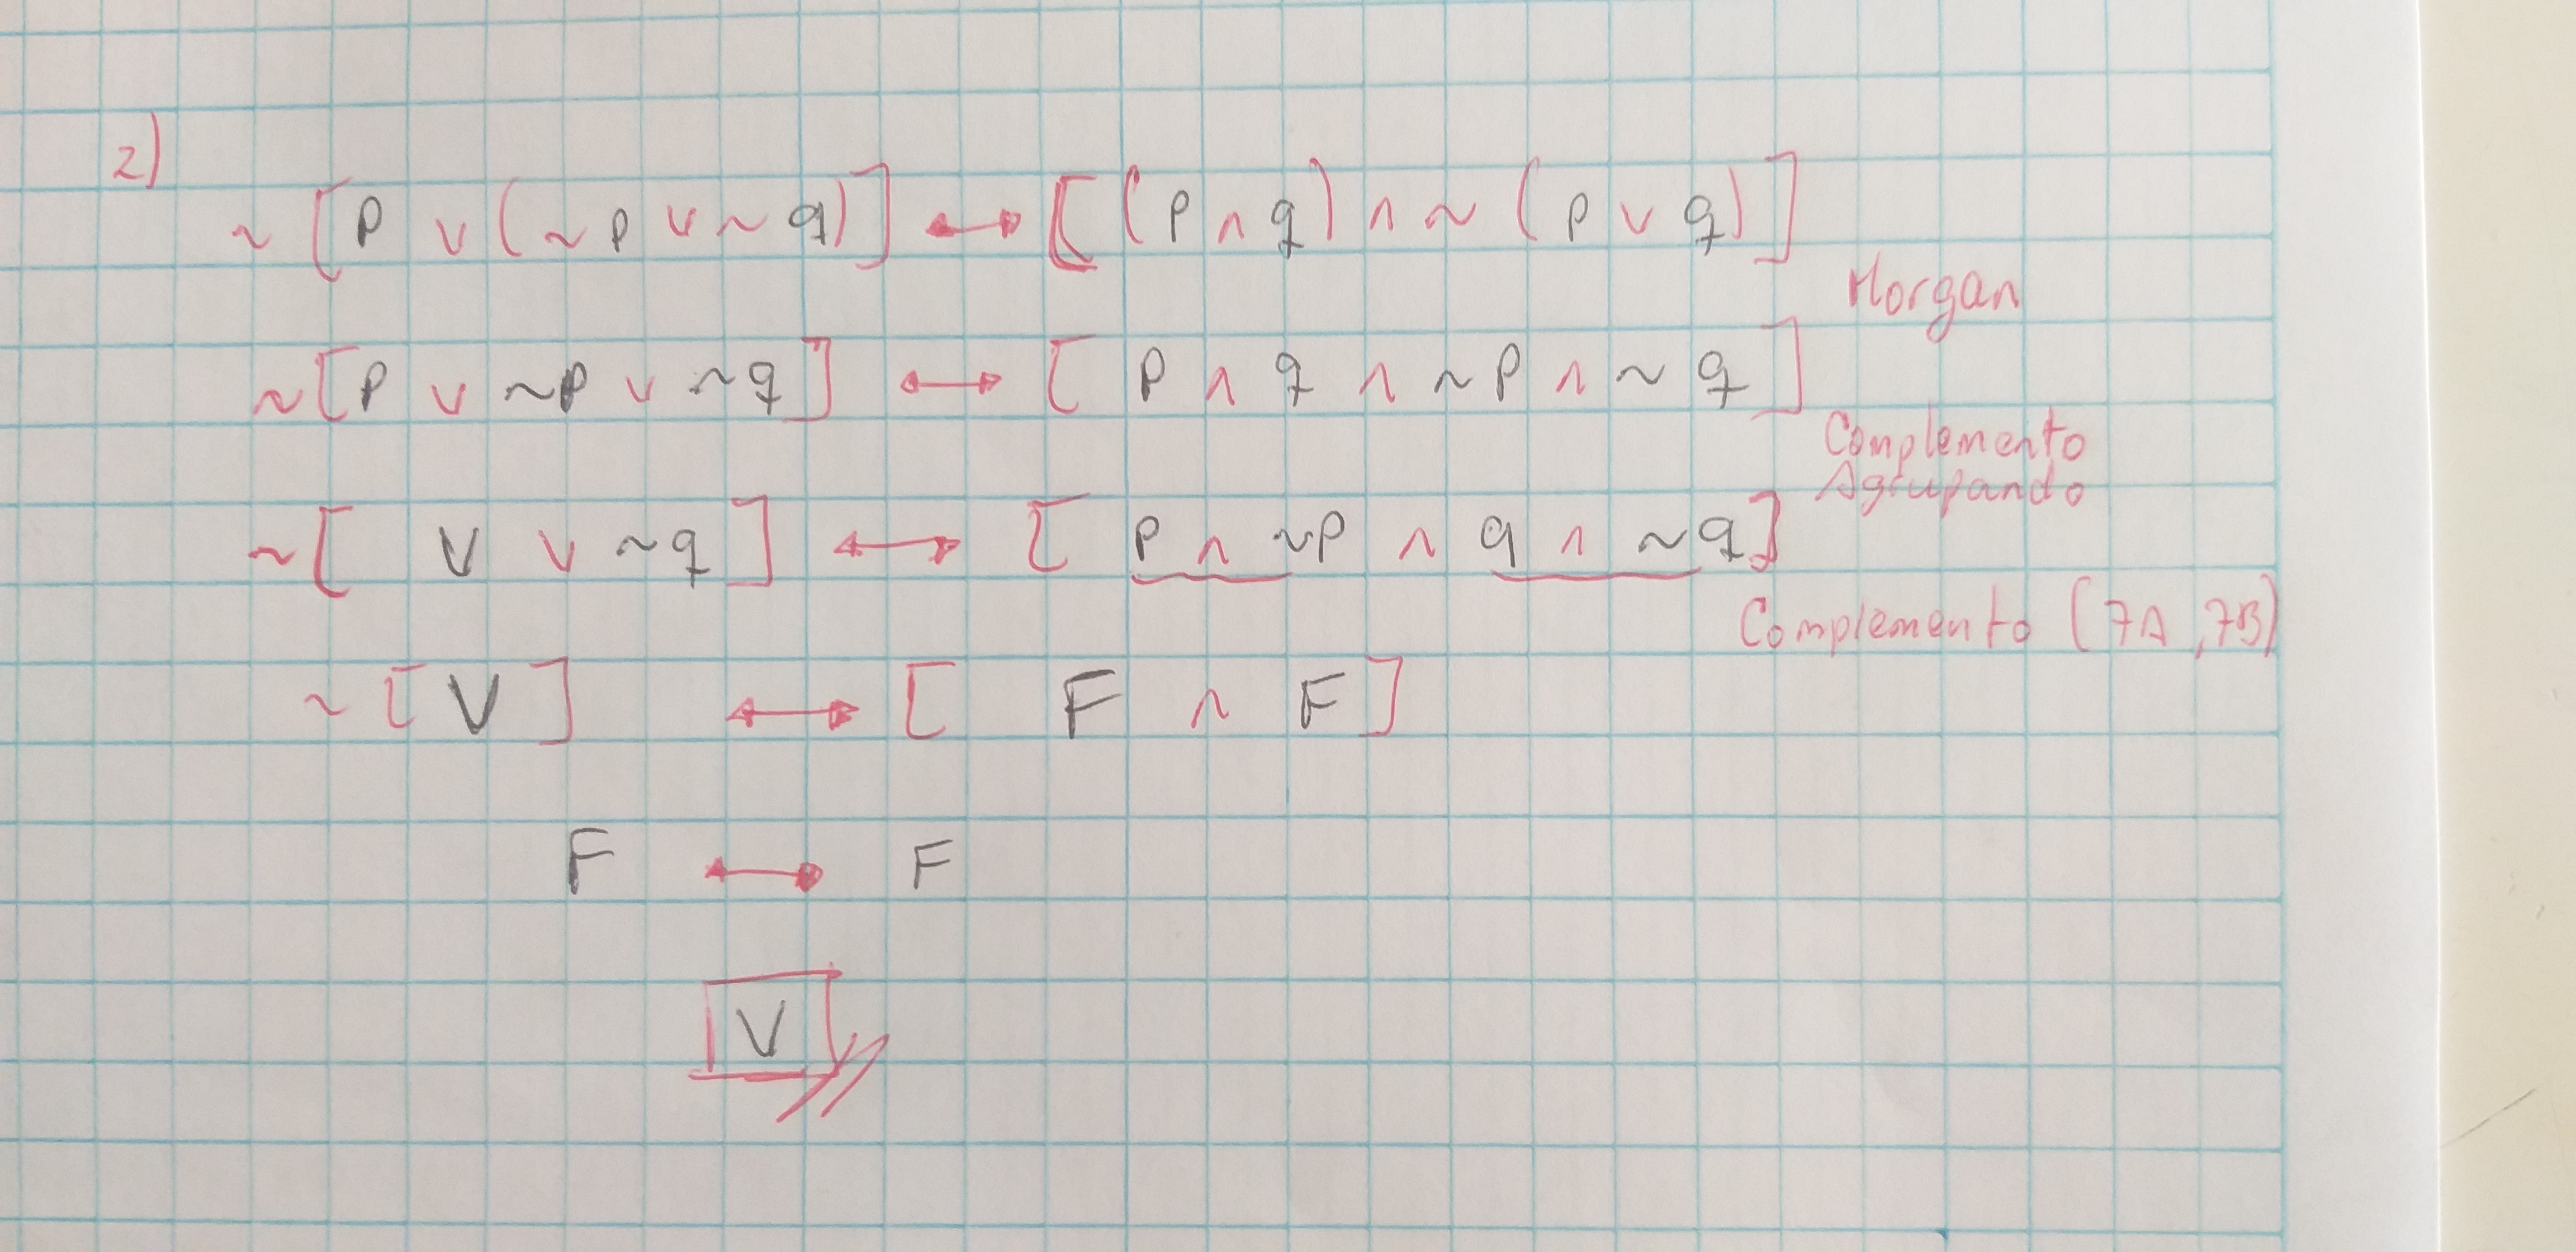 2)
~ [ p ∨ ( ~ p ∨ ~ q ) ] ↔ [ ( p ∧ q ) ∧ ~ ( p ∨ q ) ]
Morgan
~ [ p ∨ ~p ∨ ~q ] ↔ [ p ∧ q ∧ ~p ∧ ~q ]
Complemento
Agrupando
~ [ V ∨ ~q ] ↔ [ p ∧ ~p ∧ q ∧ ~q ]
Complemento (7A, 7B)
~ [ V ] ↔ [ F ∧ F ]
F ↔ F
V